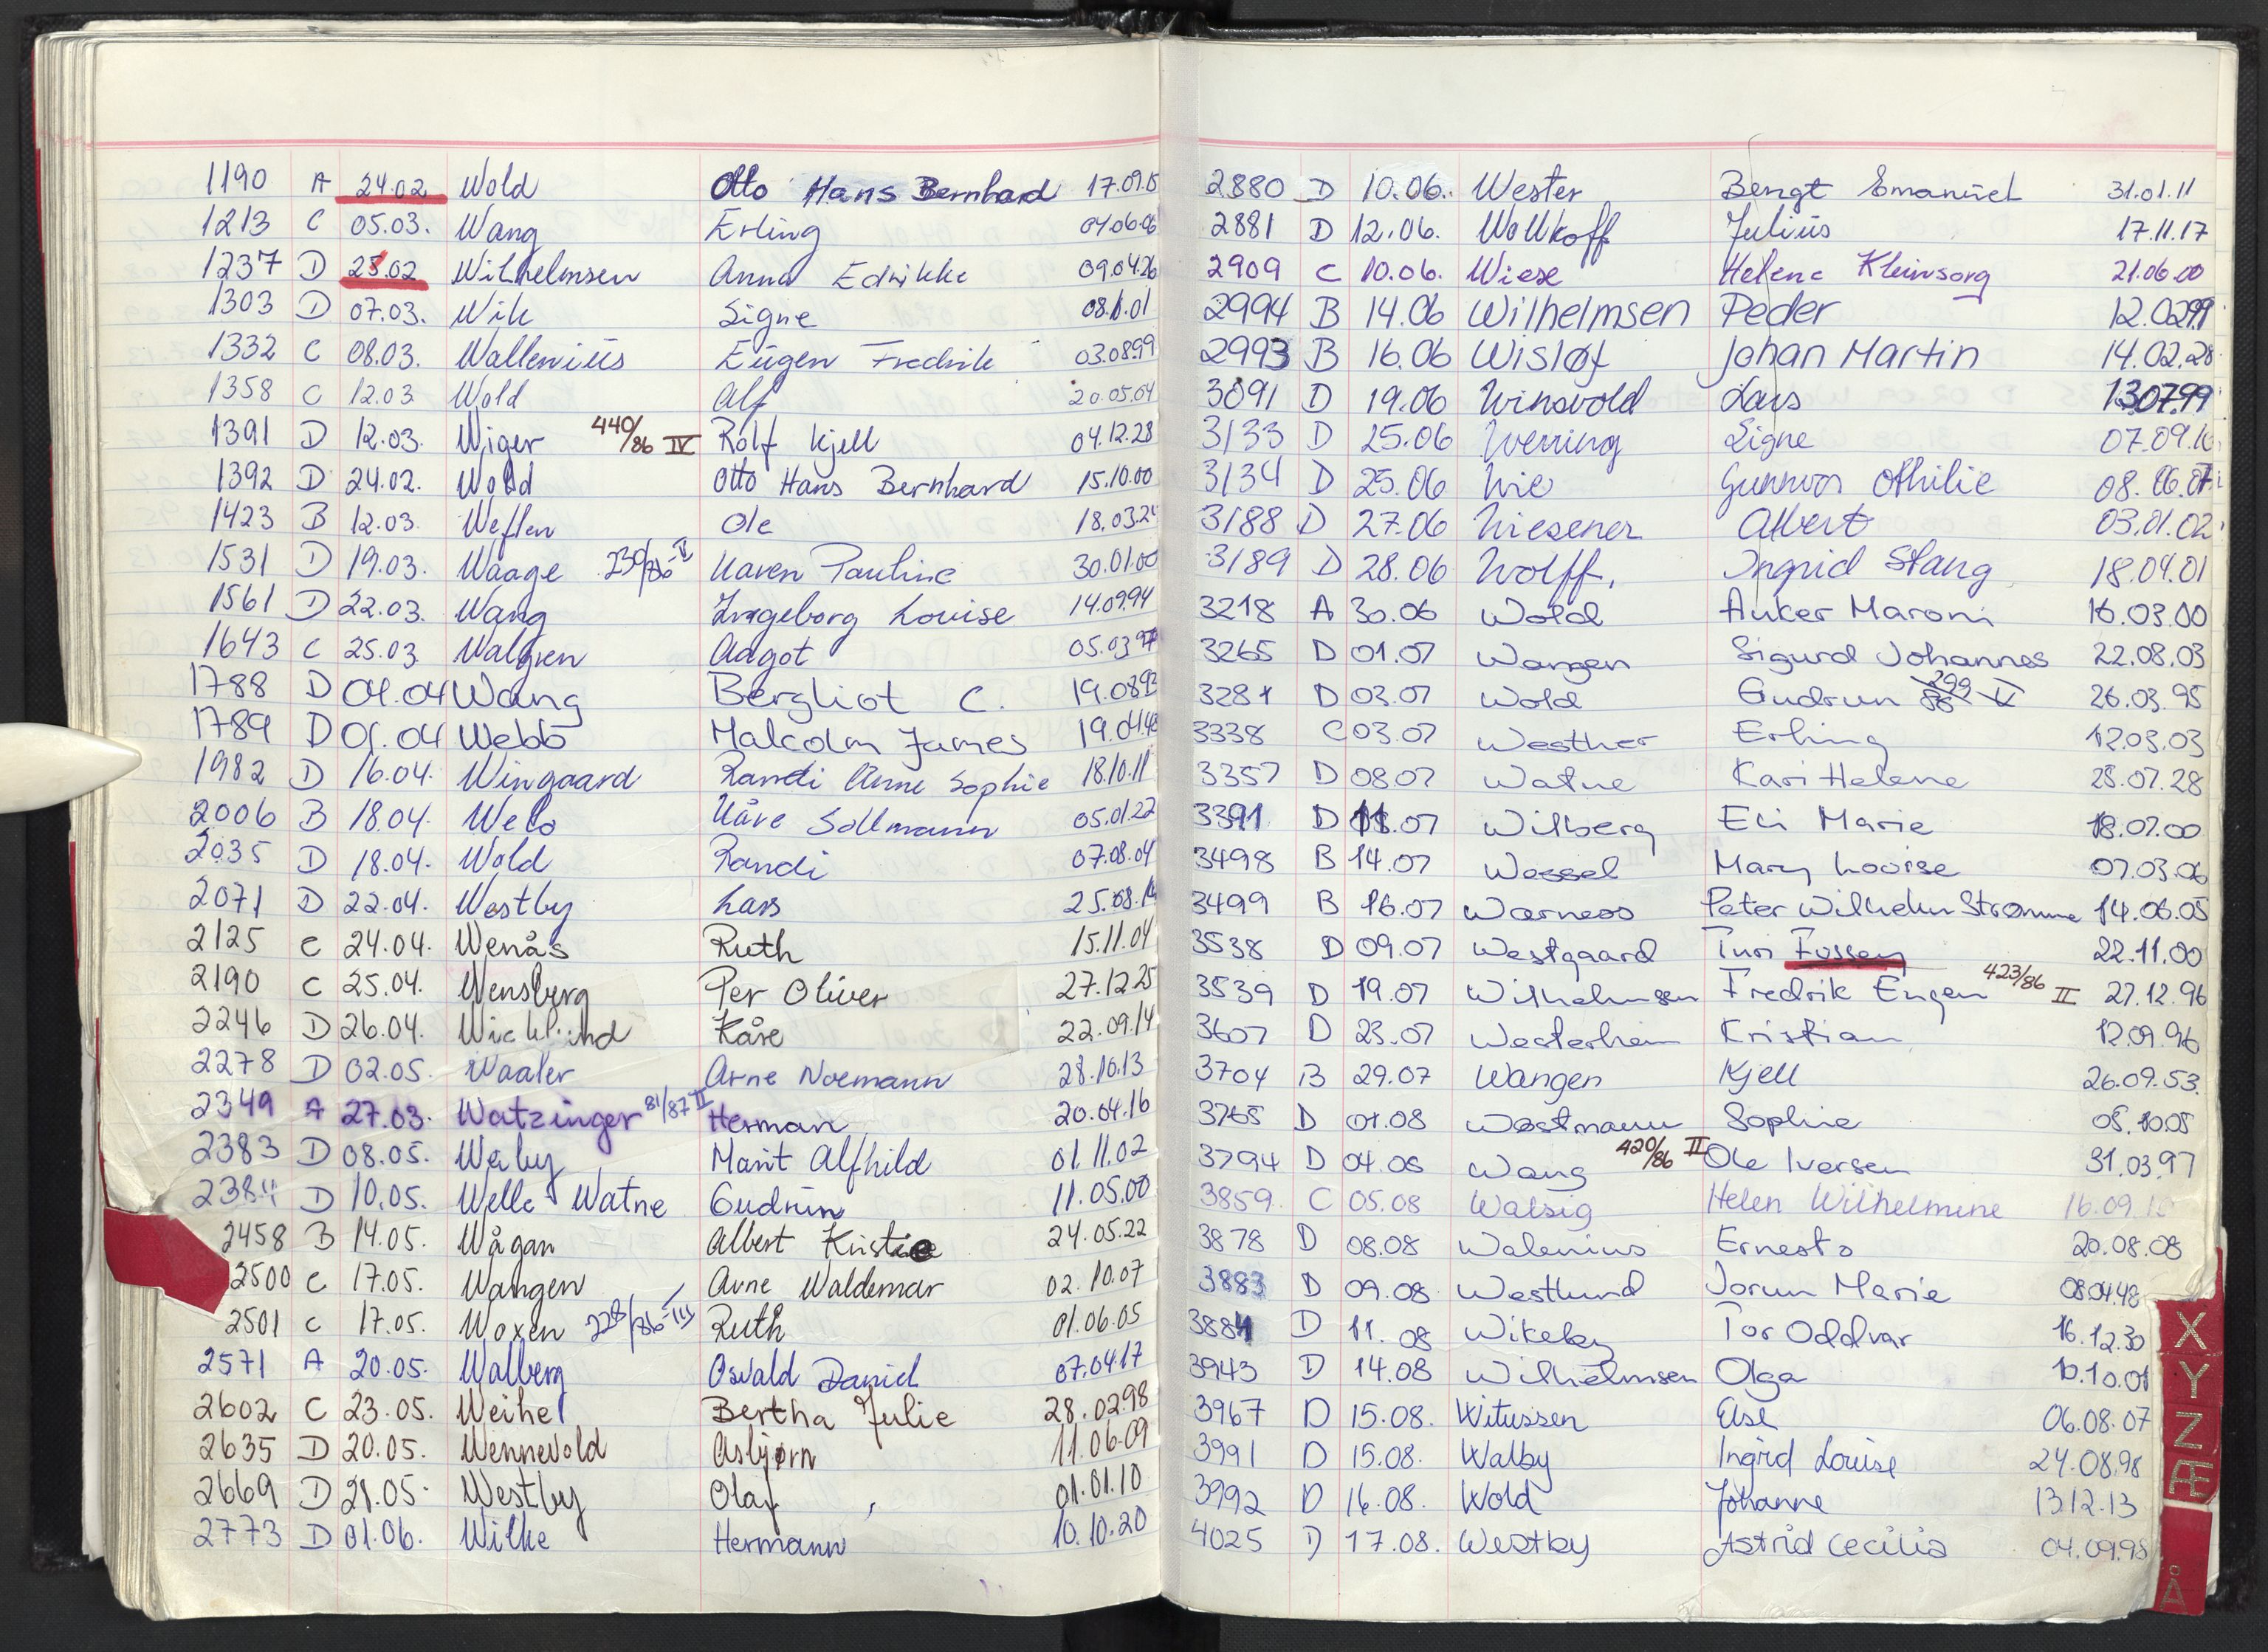 1190 A 24.02 Wold Otto Hans Bernhard 17.09.15
1213 C 05.03. Wang Erling 04.06.06
1237 D 25.02 Wilhelmsen Anna Edrikke 09.04.26
1303 D 07.03. Wik Signe 08.11.01
1332 C 08.03. Wallenius Eugen Fredrik 03.08.99
1358 C 12.03 Wold Alf 20.05.04
1391 D 12.03. Wiger 440/86 IV Rolf Kjell 04.12.28
1392 D 24.02. Wold Otto Hans Bernhard 15.10.00
1423 B 12.03 Weflen Ole 18.03.24
1531 D 19.03. Waage 230/86-V Karen Pauline 30.01.00
1561 D 22.03. Wang Ingeborg Louise 14.09.94
1643 C 25.03 Walgren Aagot 05.03
1788 D 04.04 Wang Bergliot C. 19.08.93
1789 D 01.04 Webb Malcolm James 19.04.48
1982 D 16.04. Wingaard Randi Anne Sophie 18.10.11
2006 B 18.04. Welo Kåre Sollmann 05.01.22
2035 D 18.04. Wold Randi 07.08.04
2071 D 22.04. Westby Lars 25.08.14
2125 C 24.04. Wenås Ruth 15.11.04
2190 C 25.04. Wensberg Per Oliver 27.12.25
2246 D 26.04. Wicklund Kåre 22.09.14
2278 D 02.05. Waaler Arne Noemann 28.10.13
2349 A 27.03. Watzinger 81/87 II Herman 20.04.16
2383 D 08.05. Waby Marit Alfhild 01.11.02
2384 D 10.05. Welle Watne Gudrun 11.05.00
2458 B 14.05. Wågan Albert Kristie 24.05.22
2500 C 17.05. Wangen Arne Waldemar 02.10.07
2501 C 17.05. Woxen 228/86-III Ruth 01.06.05
2571 A 20.05. Walberg Osvald Daniel 07.04.17
2602 C 23.05. Weihel Bertha Julie 28.02.98
2635 D 20.05. Wennevold Asbjørn 11.06.09
2669 D 21.05. Westby Olaf 01.01.10
2773 D 01.06. Wilke Hermann 10.10.20
2880 D 10.06. Wester Bengt Emanuel 31.01.11
2881 D 12.06. Wollkoff Julius 17.11.17
2909 C 10.06. Wiese Helene Kleinsorg 21.06.00
2994 B 14.06 Wilhelmsen Peder 12.02.99
2993 B 16.06 Wisløf Johan Martin 14.02.28
3091 D 19.06 Winsvold Lars 13.07.99
3133 D 25.06 Werring Signe 07.09.16
3134 D 25.06 Wie Gunnvor Othilie 08.06.07
3188 D 27.06 Wiesener Albert 03.01.02
3189 D 28.06 Wolff. Ingrid Stang 18.04.01
3218 A 30.06 Wold Anker Maroni 16.03.00
3265 D 01.07 Wangen Sigurd Johannes 22.08.03
3281 D 03.07 Wold Gudrun 299/86 V 26.03.95
3338 C 03.07 Westher Erling 12.03.03
3357 D 08.07 Watne Kari Helene 25.07.28
3391 D 11.07 Wilberg Eli Marie 18.07.00
3498 B 14.07 Wessel Mary Louise 07.03.06
3499 B 16.07 Warness Peter Wilhelm Strømme 14.06.05
3538 D 09.07 Westgaard Turi Fossen 22.11.00
3539 D 19.07 Wilhelmsen Fredrik Eugen 423/86 II 27.12.96
3607 D 23.07 Westerheim Kristian 12.09.96
3704 B 29.07 Wangen Kjell 26.09.53.
3765 D 01.08 Westmann Sophie 05.10.05
3794 D 04.08 Wang 420/86 II Ole Iversen 31.03.97
3859 C 05.08 Walsig Helen Wilhelmine 16.09.
3878 D 08.08 Walenius Ernesto 20.08.08
3883 D 09.08 Westlund Jorun Marie 08.04.48
3884 D 11.08 Wikeby Tor Oddvar 16.12.30
3943 D 14.08 Wilhelmsen Olga 10.10.01
3967 D 15.08. Witussen Else 06.08.07
3991 D 15.08. Walby Ingrid Louise 24.08.98
3992 D 16.08. Wold Johanne 13.12.13
4025 D 17.08. Westby Astrid Cecilia 04.09.98
X
Y
Z
Æ
Å